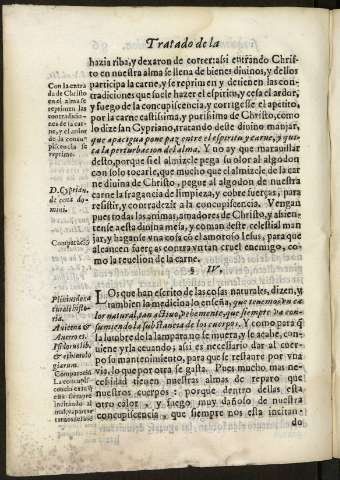 Tratado de la
hazia riba, y dexaron de correr: assi entrando Chris-
to en nuestra alma se llena de bienes diuinos, y dellos
participa la carne, y se reprimen y detienen las con-
tradiciones que suele hazer el espiritu, y cesa el ardor,
y fuego de la concupiscencia, y corrigesse el apetito,
por la carne castissima, y purissima de Christo, como
lo dize san Cypriano, tratando deste diuino manjar,
que apacigua y pone paz entre el espiritu y carne, y quie-
ta la perturbacion del alma. Y no ay que marauillar
desto, porque si el almizcle pega su olor al algodon
con solo tocarle, que mucho que el almizcle de la car
ne diuina de Christo, pegue al algodon de nuestra
carne la fragancia de limpieza, y cobre fuerças, para
resistir, y contradezir a la concupiscencia. Vengan
pues todas las animas, amadores de Christo, y assien-
tense a esta diuina mesa, y coman deste celestial man-
jar, y hagan se vna cosa cõ el amoroso Iesus, para que
alcancen fuerças contra vn tan cruel enemigo, co-
mo la reuelion de la carne.
§ IV.
LOs que han escrito de las cosas naturales, dizen, y
tambien la medicina lo enseña, que tenemos vn ca
lor natural, tan actiuo, y vehemente, que siempre va con-
sumiendo la substancia de los cuerpos, Y como para q̃
la lumbre de la lampara no se muera, y se acabe, conui-
ene y la ceuando; assi es necessario dar al cuer-
po su mantenimiento, para que se restaure por vna
via, lo que por otra se gasta. Pues mucho mas ne-
cessidad tienen nuestras almas de reparo que
nuestros cuerpos: porque dentro dellas esta
otro calor, y fuego muy dañoso de nuestra
concupiscencia, que siempre nos esta incitan-
do
Con la entra
da de Christo
en el alma se
reprimen las
contradicio-
nes de la car-
ne, y el ardor
de la concu-
piscencia se
reprime.
D. Cyprian.
de cœna do-
mini.
Comparació
Plinius de na
turali histo-
ria.
Auicena &
Auerroes
Comparació
La concupis-
cencia